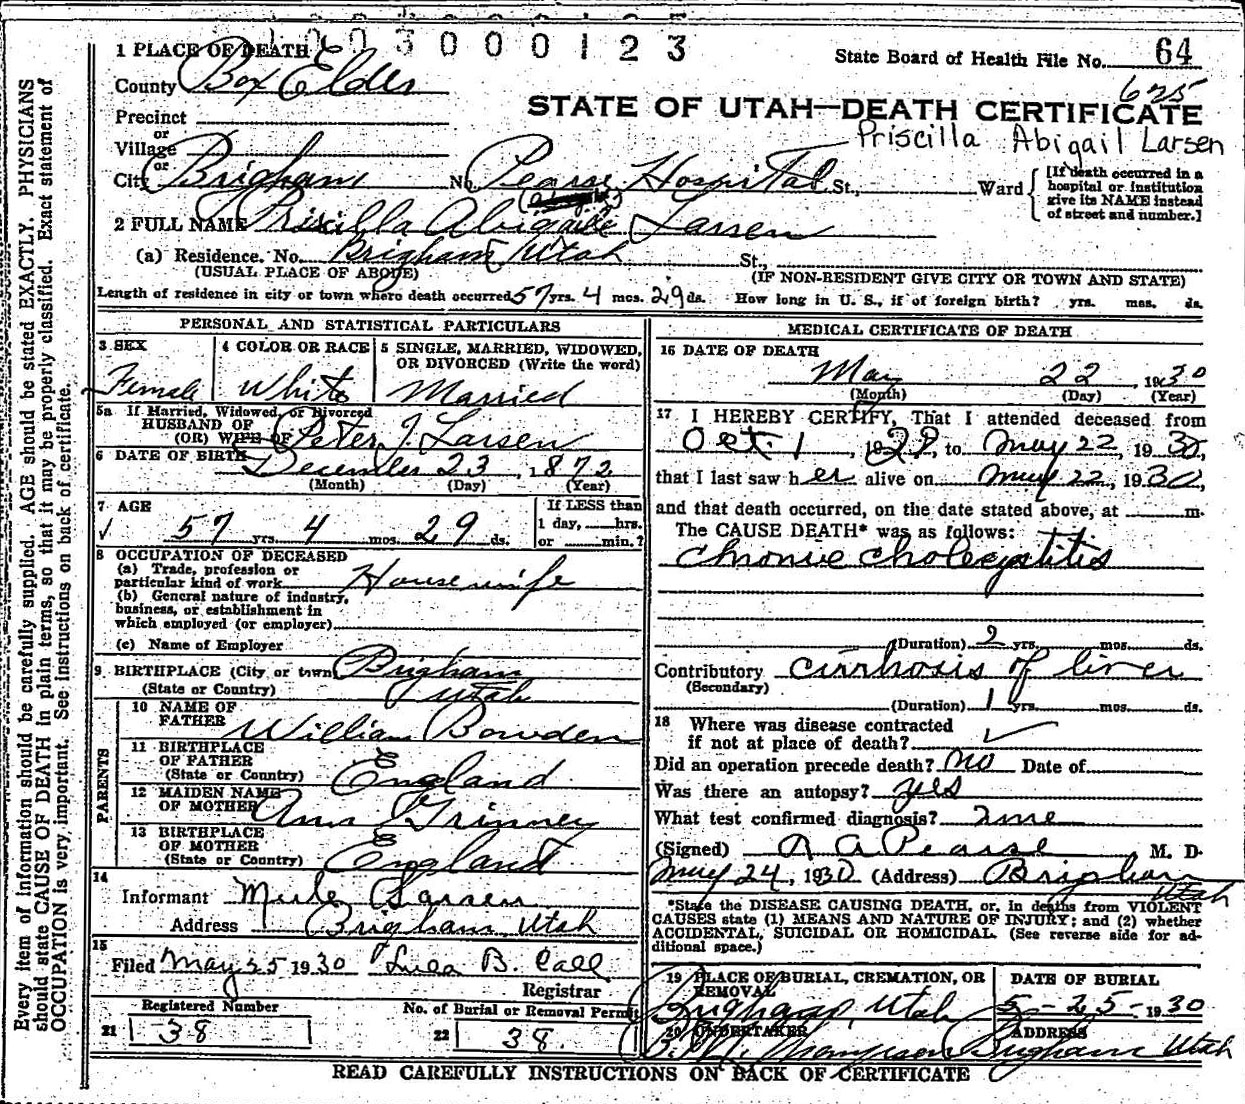 1003000123
1 PLACE OF DEATH
State Board of Health File No. 64
County Box Elder
625
STATE OF UTAH—DEATH CERTIFICATE
Precinct
or
Village
Priscilla Abigail Larsen
or
City Brigham No. Pearse Hospital St., Ward
[If death occurred in a hospital or institution give its NAME instead of street and number.]
2 FULL NAME Priscilla Abigaile Larsen
(a) Residence. No. Brigham Utah St.,
(USUAL PLACE OF ABODE) (IF NON-RESIDENT GIVE CITY OR TOWN AND STATE)
Length of residence in city or town where death occurred 57 yrs. 4 mos. 29 ds. How long in U. S., if of foreign birth? yrs. mos. ds.
PERSONAL AND STATISTICAL PARTICULARS
3 SEX 4 COLOR OR RACE 5 SINGLE, MARRIED, WIDOWED,
OR DIVORCED (Write the word)
Female White Married
5a If Married, Widowed, or Divorced
HUSBAND OF
(OR) WIFE OF Peter J. Larsen
6 DATE OF BIRTH December 23, 1872
(Month) (Day) (Year)
7 AGE If LESS than
1 day, hrs.
57 yrs. 4 mos. 29 ds. or min.?
8 OCCUPATION OF DECEASED
(a) Trade, profession or
particular kind of work Housewife
(b) General nature of industry,
business, or establishment in
which employed (or employer)
(c) Name of Employer
9 BIRTHPLACE (City or town) Brigham
(State or Country) Utah
PARENTS
10 NAME OF
FATHER William Bowden
11 BIRTHPLACE
OF FATHER
(State or Country) England
12 MAIDEN NAME
OF MOTHER Ann Grinney
13 BIRTHPLACE
OF MOTHER
(State or Country) England
14
Informant Larsen
Address Brigham, Utah
15
Filed May 25 1930 B. Call
Registrar
Registered Number No. of Burial or Removal Permit
21 38 22 38.
MEDICAL CERTIFICATE OF DEATH
16 DATE OF DEATH
May 22, 1930
(Month) (Day) (Year)
17 I HEREBY CERTIFY, That I attended deceased from
Oct. 1, 1929, to May 22, 1930,
that I last saw her alive on May 22, 1930,
and that death occurred, on the date stated above, at m.
The CAUSE DEATH* was as follows:
Chronic cholecystitis
(Duration) 2 yrs. mos. ds.
Contributory cirrhosis of liver
(Secondary)
(Duration) 1 yrs. mos. ds.
18 Where was disease contracted
if not at place of death? ✓
Did an operation precede death? no Date of
Was there an autopsy? yes
What test confirmed diagnosis?
(Signed) R A Pearse M. D.
May 24, 1930 (Address) Brigham
Utah
*State the DISEASE CAUSING DEATH, or, in deaths from VIOLENT
CAUSES state (1) MEANS AND NATURE OF INJURY; and (2) whether
ACCIDENTAL, SUICIDAL OR HOMICIDAL. (See reverse side for ad-
ditional space.)
19 PLACE OF BURIAL, CREMATION, OR DATE OF BURIAL
REMOVAL
Brigham, Utah 5-25-1930
20 UNDERTAKER ADDRESS
Thompson Brigham Utah
READ CAREFULLY INSTRUCTIONS ON BACK OF CERTIFICATE
Every item of information should be carefully supplied. AGE should be stated EXACTLY. PHYSICIANS
should state CAUSE OF DEATH in plain terms, so that it may be properly classified. Exact statement of
OCCUPATION is very important. See instructions on back of certificate.